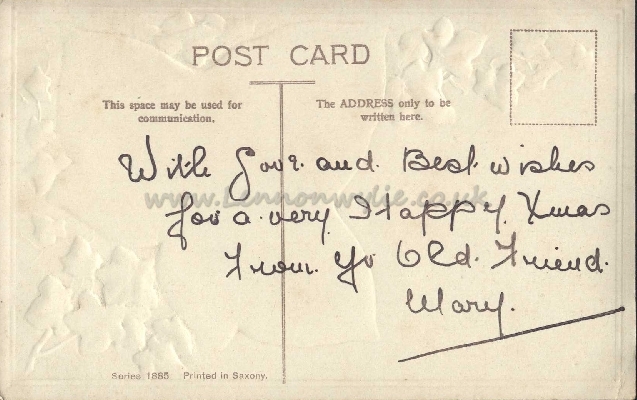 POST CARD
This space may be used for
communication.
The ADDRESS only to be
written here.
With Love. and. Best wishes
for a very Happy. Xmas
From. Yr Old. Friend.
Mary.
www.Lennonwylie.co.uk
Series 1885 Printed in Saxony.